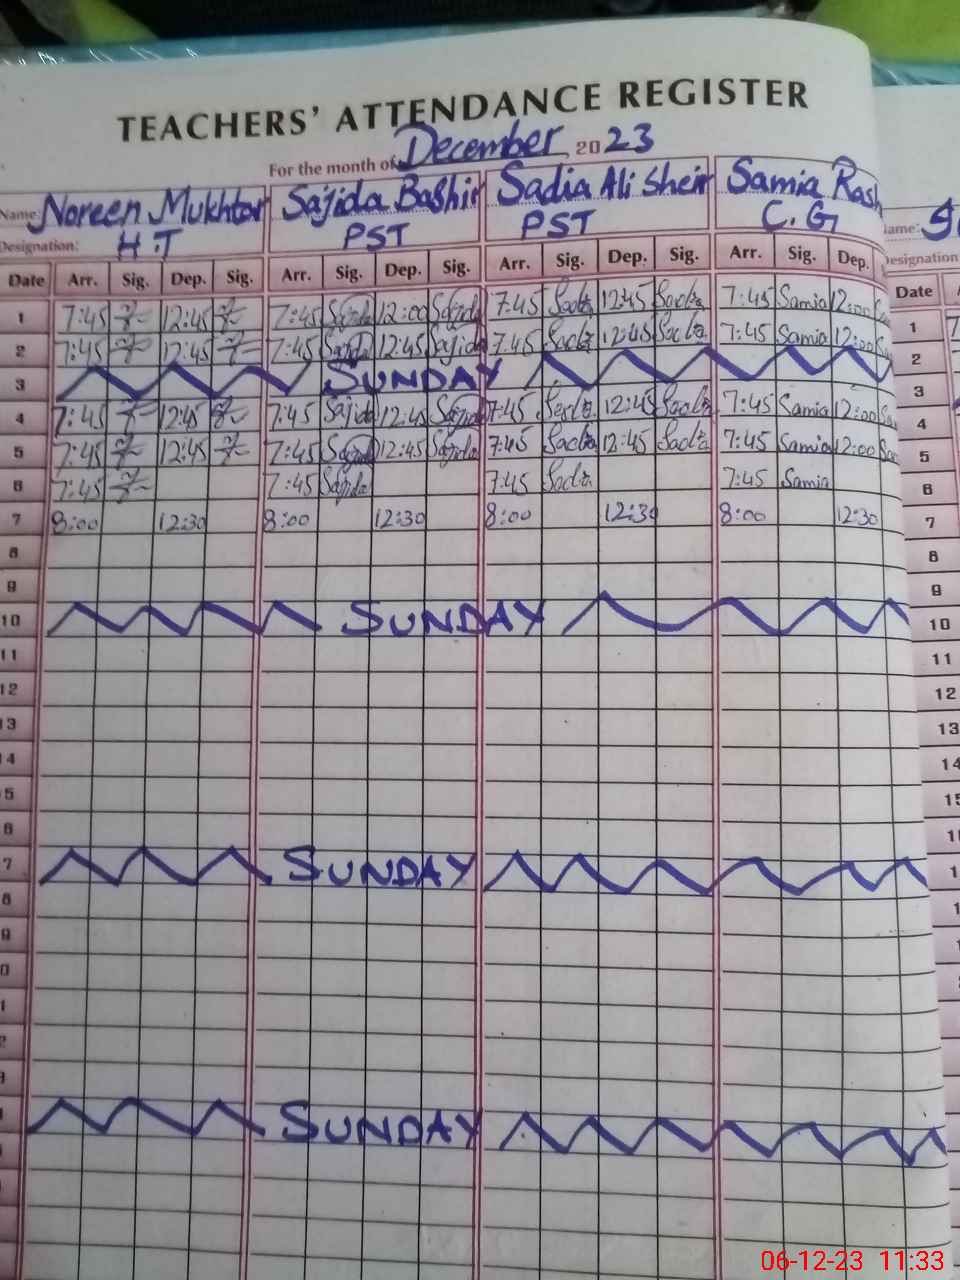 TEACHERS' ATTENDANCE REGISTER
For the month of December 2023
Name: Noreen Mukhtar Sajida Bashir Sadia Ali Sheir Samia Rash
Designation: H.T PST PST C.G
Date Arr. Sig. Dep. Sig. Arr. Sig. Dep. Sig. Arr. Sig. Dep. Sig. Arr. Sig. Dep. Date
1 7:45 12:45 7:45 Sajida 12:00 Sajida 7:45 Sadia 12:45 Sadia 7:45 Samia 12:00 1
2 7:45 12:45 7:45 Sajida 12:45 Sajida 7:45 Sadia 12:45 Sadia 7:45 Samia 12:00 2
3 SUNDAY 3
4 7:45 12:45 7:45 Sajida 12:45 Sajida 7:45 Sadia 12:45 Sadia 7:45 Samia 12:00 4
5 7:45 12:45 7:45 Sajida 12:45 Sajida 7:45 Sadia 12:45 Sadia 7:45 Samia 12:00 5
6 7:45 7:45 Sajida 7:45 Sadia 7:45 Samia 6
7 8:00 12:30 8:00 12:30 8:00 12:30 8:00 12:30 7
8 8
9 9
10 SUNDAY 10
11 11
12 12
13 13
14 14
5 15
6
7 SUNDAY
8
9
0
1
2
SUNDAY
06-12-23 11:33